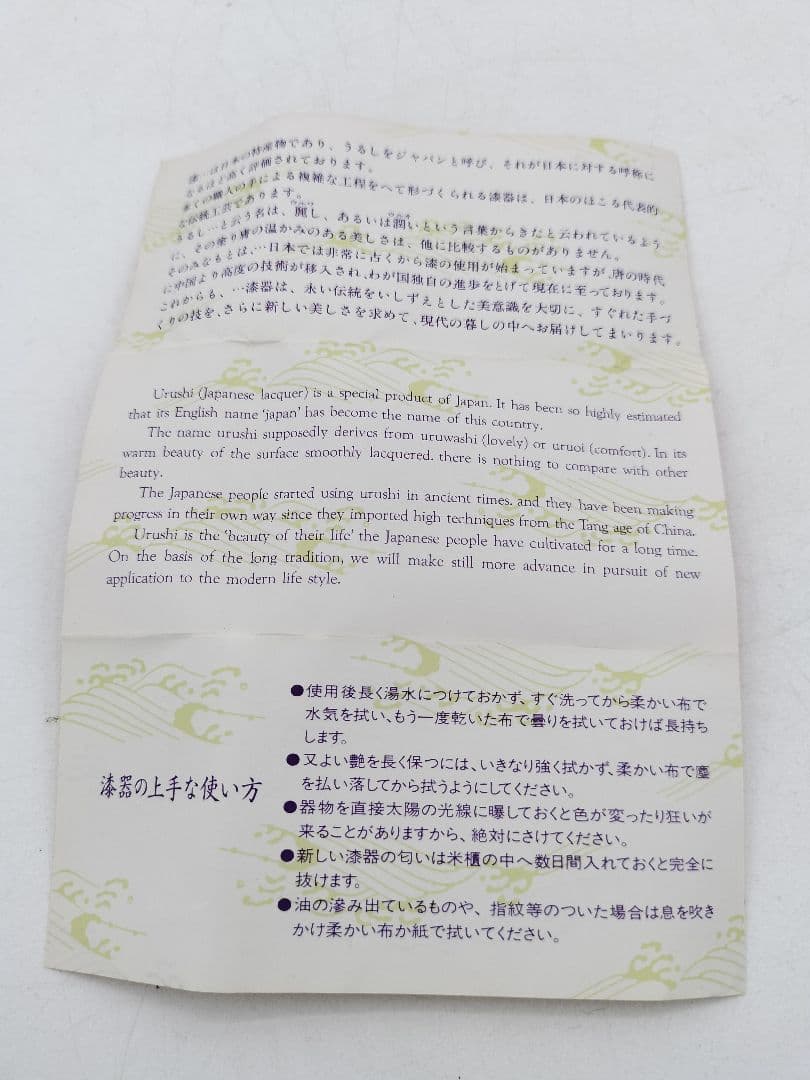 漆…は日本の特産物であり、うるしをジャパンと呼び、それが日本に対する呼称に
なるほど高く評価されております。
多くの職人の手による複雑な工程をへて形づくられる漆器は、日本のほこる代表的
な伝統工芸であります。
うるし…と云う名は、麗し、あるいは潤いという言葉からきたと云われているよう
に、その塗り膚の温かみのある美しさは、他に比較するものがありません。
そのみなもとは、…日本では非常に古くから漆の使用が始まっていますが、唐の時代
に中国より高度の技術が移入され、わが国独自の進歩をとげて現在に至っております。
これからも、…漆器は、永い伝統をいしずえとした美意識を大切に、すぐれた手づ
くりの技を、さらに新しい美しさを求めて、現代の暮しの中へお届けしてまいります。
Urushi (Japanese lacquer) is a special product of Japan. It has been so highly estimated
that its English name 'japan' has become the name of this country.
The name urushi supposedly derives from uruwashi (lovely) or uruoi (comfort). In its
warm beauty of the surface smoorhly lacquered. there is nothing to compare with other
beauty.
The Japanese people started using urushi in ancient times. and they have been making
progress in their own way since they imported high techniques from the Tang age of China.
Urushi is the 'beauty of their life' the Japanese people have cultivated for a long time.
On the basis of the long tradition, we will make still more advance in pursuit of new
application to the modern life style.
漆器の上手な使い方
●使用後長く湯水につけておかず、すぐ洗ってから柔かい布で
水気を拭い、もう一度乾いた布で曇りを拭いておけば長持ち
します。
●又よい艶を長く保つには、いきなり強く拭かず、柔かい布で塵
を払い落してから拭うようにしてください。
●器物を直接太陽の光線に曝しておくと色が変ったり狂いが
来ることがありますから、絶対にさけてください。
●新しい漆器の匂いは米櫃の中へ数日間入れておくと完全に
抜けます。
●油の滲み出ているものや、指紋等のついた場合は息を吹き
かけ柔かい布か紙で拭いてください。